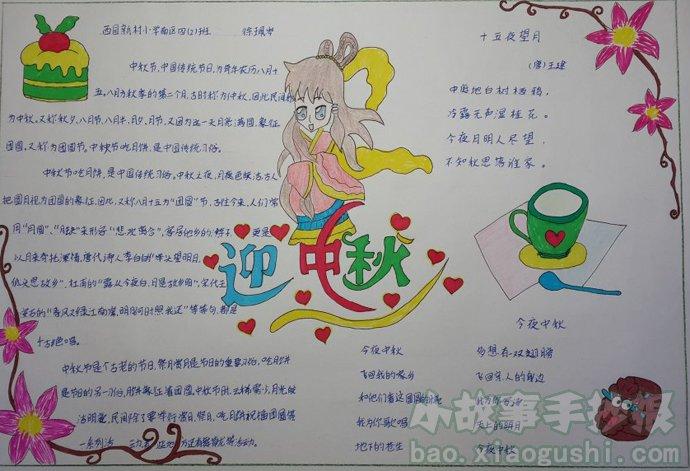 西园新村小学南区四(2)班
中秋节,中国传统节日,为每年农历八月十
五,八月为秋季的第二个月,古时称为中秋,因此民间称
为中秋,又称秋夕、八月节、八月半、月夕、月节,又因为这一天月亮满圆,象征
团圆,又称为团圆节。中秋节吃月饼,是中国传统习俗。
中秋节吃月饼,是中国传统习俗。中秋之夜,月色皎洁,古人
把圆月视为团圆的象征,因此,又称八月十五为“团圆”节。古往今来,人们常
用“月圆”、“月缺”来形容“悲欢离合”,客居他乡的
以月来寄托深情。唐代诗人李白的“举头望明月,
低头思故乡”,杜甫的“露从今夜白,月是故乡明”,宋代王
安石的“春风又绿江南岸,明月何时照我还”等等句,都是
千古绝唱。
中秋节是个古老的节日,祭月赏月是节日的重要习俗。吃月饼
是节日的另一习俗,月饼象征着团圆。中秋节时,云稀雾少,月光皎
洁明亮,民间除了要举行赏月、祭月、吃月饼祝福团圆等
一系列活
迎中秋
十五夜望月
(唐)王建
中庭地白树栖鸦,
冷露无声湿桂花。
今夜月明人尽望,
不知秋思落谁家。
今夜中秋
今夜中秋
飞回我的家乡
地下的苍生
多想有双翅膀
飞回亲人的身边
天上的明月
今夜中秋
小故事手抄报
bao.xiaogushi.com